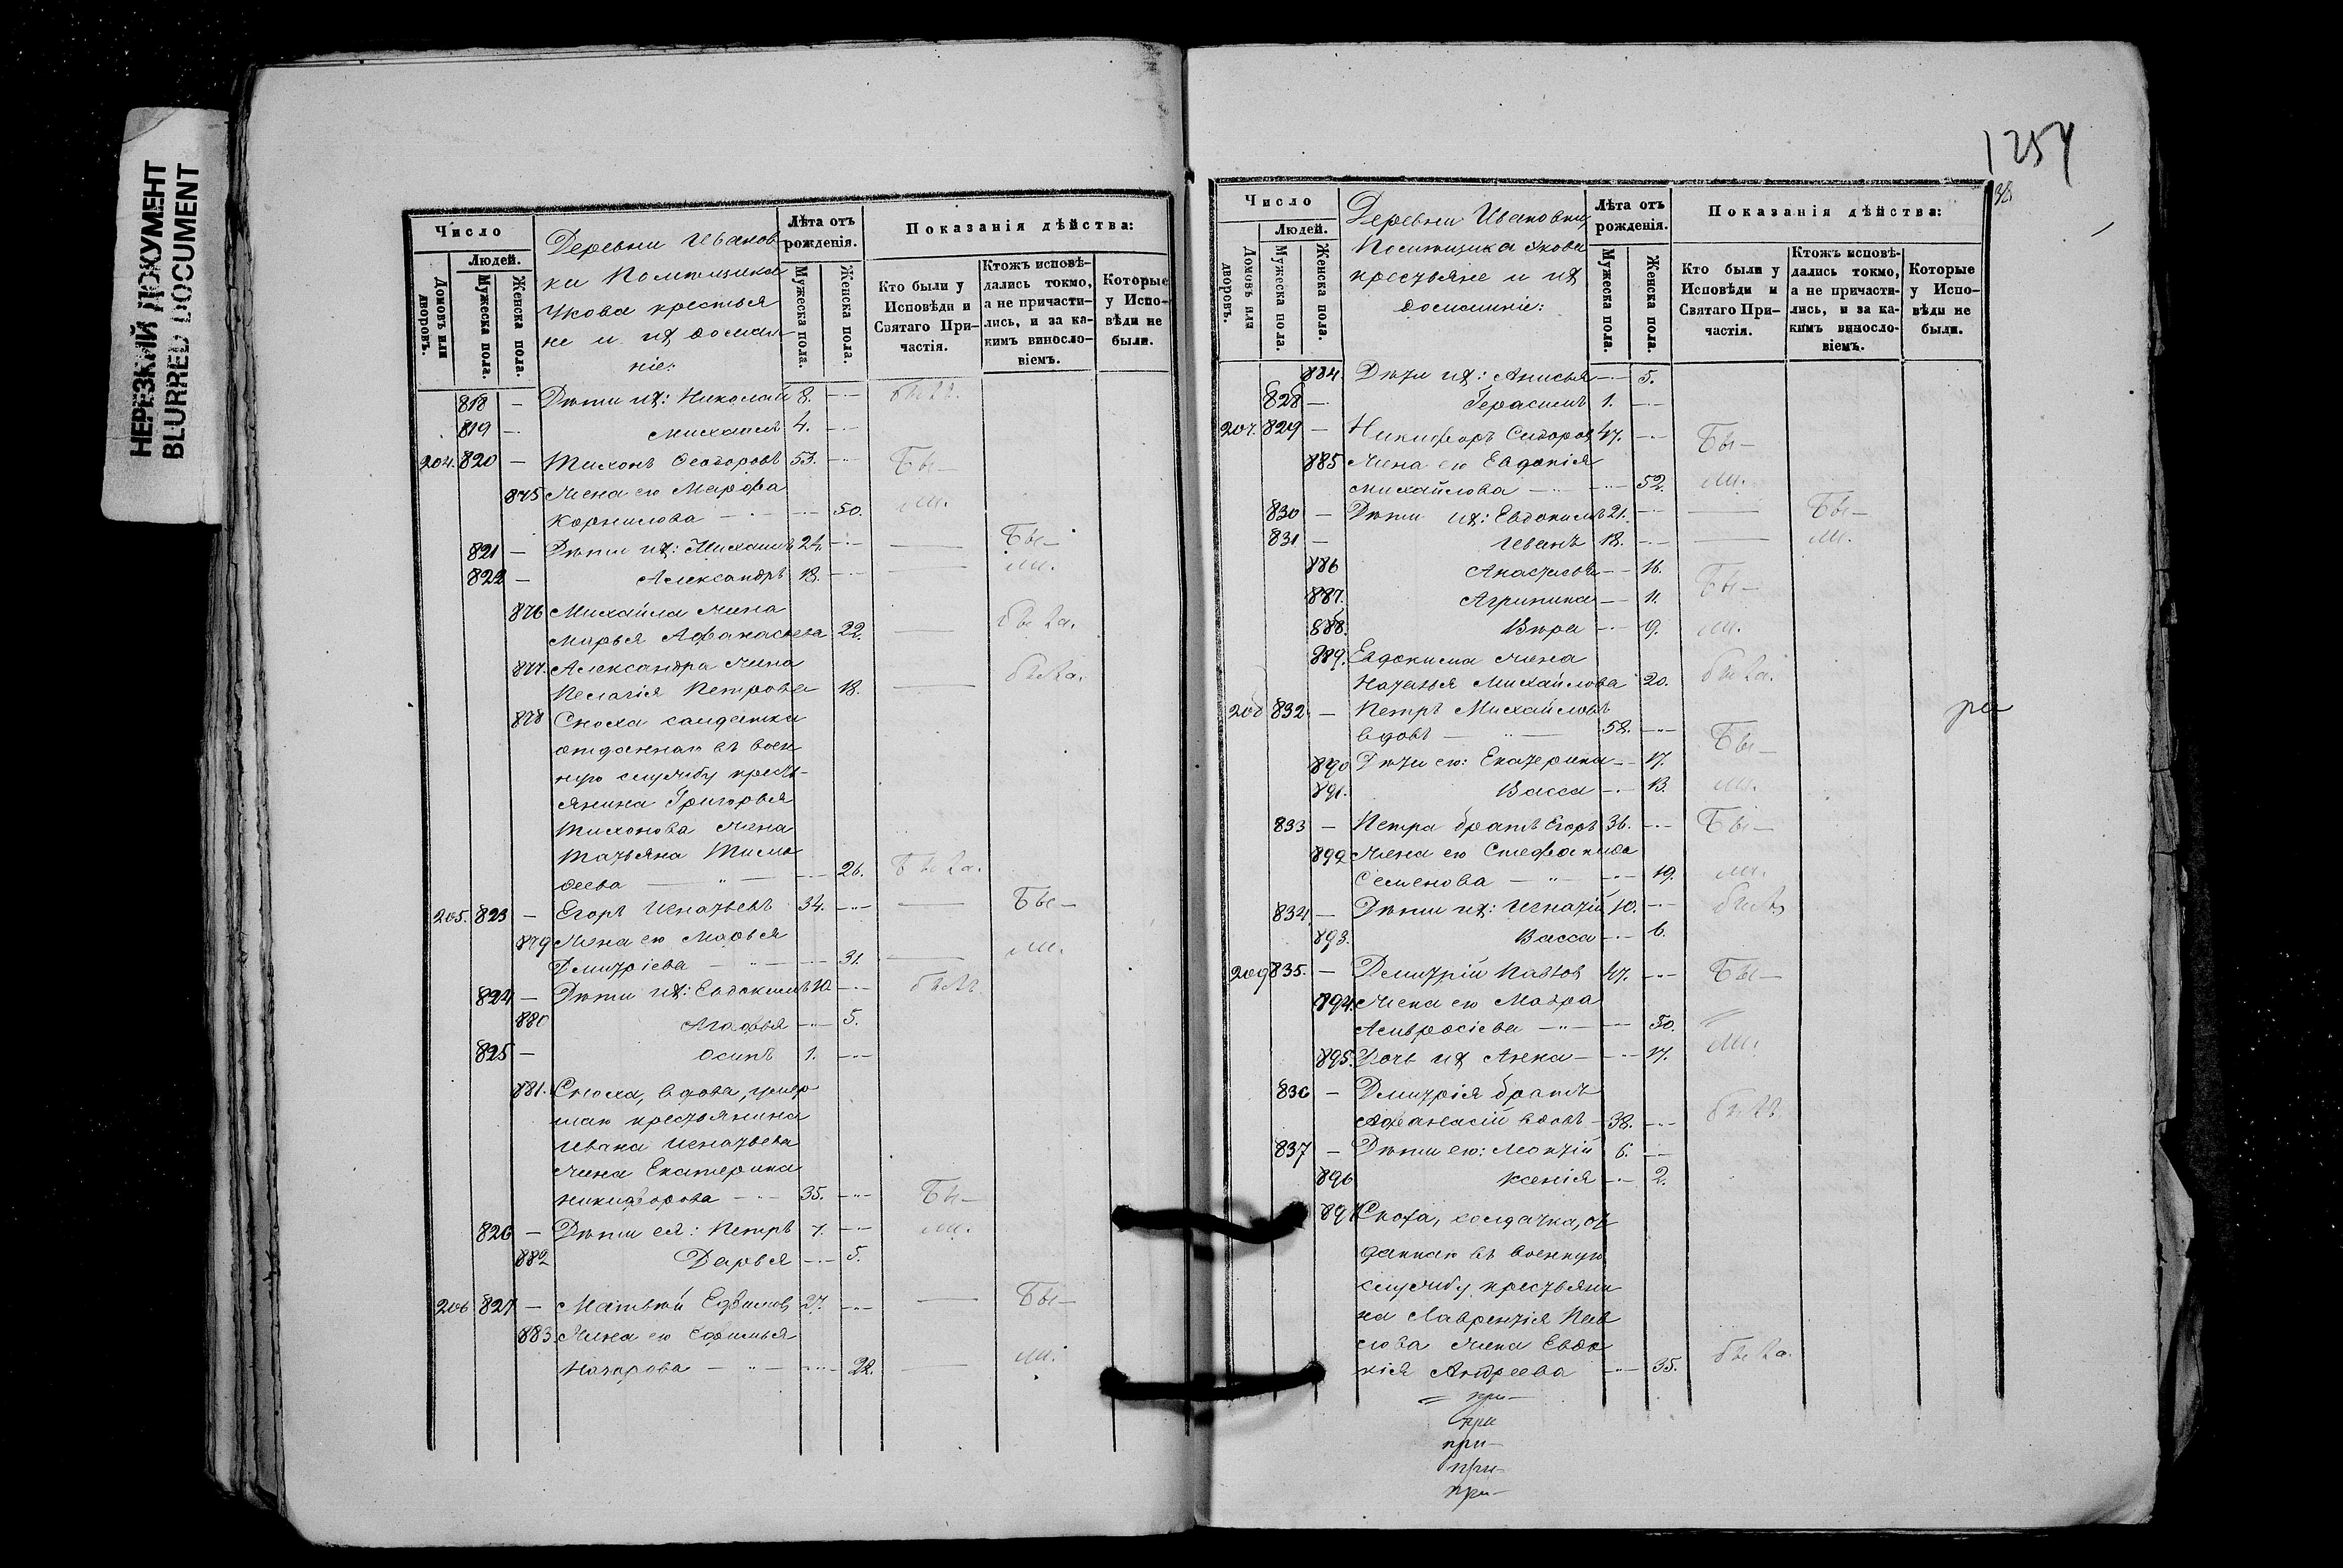 НЕРЕЗКИЙ ДОКУМЕНТ
BLURRED DOCUMENT
Число
Людей.
Домовъ или дворовъ.
Мужеска пола.
Женска пола.
Деревни Иванов-
ки Помѣщика
Укова крестья
не и их домаш-
ніе:
Лѣта отъ рожденія.
Мужеска пола.
Женска пола.
Показанія дѣйства:
Кто были у Исповѣди и Святаго При-частія.
Ктожъ исповѣ-дались токмо, а не причасти-лись, и за ка-кимъ винословіемъ.
Которые у Испо-вѣди не были.
818 — Дѣти их: Николай 8. былъ.
819 — Михаилъ 4.
204. 820 — Тихонъ Ѳеодоровъ 53. Бы—
875 Жена его Марфа
Корнилова 50. ли.
821 — Дѣти их: Михаилъ 24. — Бы—
822 — Александръ 18. — ли.
876 Михайла жена
Марья Афанасьева 22. — была.
877. Александра жена
Пелагія Петрова 18. — была.
878 Сноха солдатка
отданнаго въ воен
ную службу кресть-
янина Григорья
Тихонова жена
Татьяна Тимо
ѳеева 26. Была.
205. 823 — Егоръ Игнатьевъ 34. — Бы—
879 Жена его Марья
Дмитріева 31. — ли.
824 — Дѣти их: Евдокимъ 10. былъ.
880 Агафья 5.
825 — Осипъ 1.
881. Сноха, вдова, умер
шаго крестьянина
Ивана Игнатьева
жена Екатерина
Никифорова 35. Бы—
826 — Дѣти ея: Петръ 7. ли.
882 Дарья 5.
206 827 — Матвѣй Ефимов 27. — Бы—
883. Жена его Ефимья
Назарова 22. — ли.
1257
Число
Людей.
Домовъ или дворовъ.
Мужеска пола.
Женска пола.
Деревни Ивановки,
Помѣщика Укова
крестьяне и их
домашніе:
Лѣта отъ рожденія.
Мужеска пола.
Женска пола.
Показанія дѣйства:
Кто были у Исповѣди и Святаго При-частія.
Ктожъ исповѣ-дались токмо, а не причасти-лись, и за ка-кимъ винословіемъ.
Которые у Испо-вѣди не были.
884. Дѣти их: Анисья 5.
828 — Герасимъ 1.
207. 829 — Никифоръ Сидоров 47. Бы—
885 Жена его Евдокія
Михайлова 52. ли.
830 — Дѣти их: Евдокимъ 21. — Бы—
831 — Иванъ 18. — ли.
886 Анастасья 16. Бы—
887. Агрипина 11.
888. Вѣра 9. ли.
889. Евдокима жена
Наталья Михайлова 20. была.
208 832. — Петръ Михайловъ
вдовъ 58. Бы—
ри
890 Дѣти его: Екатерина 17.
891. Васса 13. ли.
833 — Петра братъ Егоръ 36. Бы—
892 Жена его Стефанида
Семенова 19. ли.
834 — Дѣти их: Игнатій 10. былъ
893. Васса 6.
209 835. — Дмитрій Павлов 47. Бы—
894. Жена его Мавра
Амвросіева 50.
895. Дочь их Анна 17. ли.
836 — Дмитрія братъ
Афанасій вдовъ 38. былъ
837 — Дѣти его: 6.
896 Ксенія 2.
897 Сноха, солдатка, от
даннаго въ военную
службу крестьяни
на Лаврентія Пав
лова жена Евдо
кія Андреева 35. была.
при—
при
при—
при—
при—